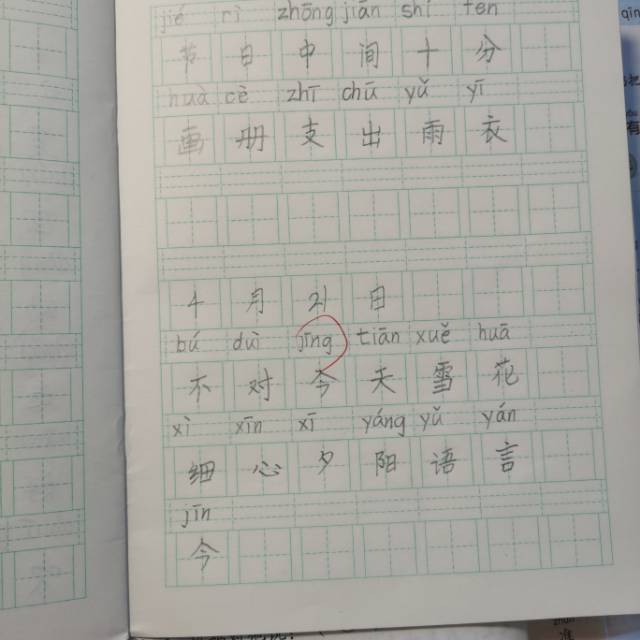 jié rì zhōng jiān shí fēn
节 日 中 间 十 分
huà cè zhī chū yǔ yī
画 册 支 出 雨 衣
4 月 21 日
bú duì jīng tiān xuě huā
不 对 今 天 雪 花
xì xīn xī yáng yǔ yán
细 心 夕 阳 语 言
jīn
今